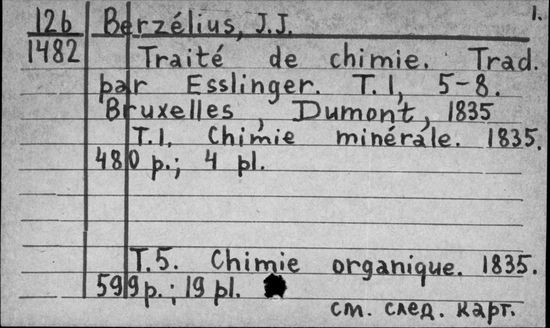 1.
12b Berzélius, J.J.
1482 Traité de chimie. Trad.
par Esslinger. T.1, 5-8.
Bruxelles, Dumont, 1835
T.1. Chimie minérale. 1835.
480 p.; 4 pl.
T.5. Chimie organique. 1835.
599 p.; 19 pl.
см. след. карт.